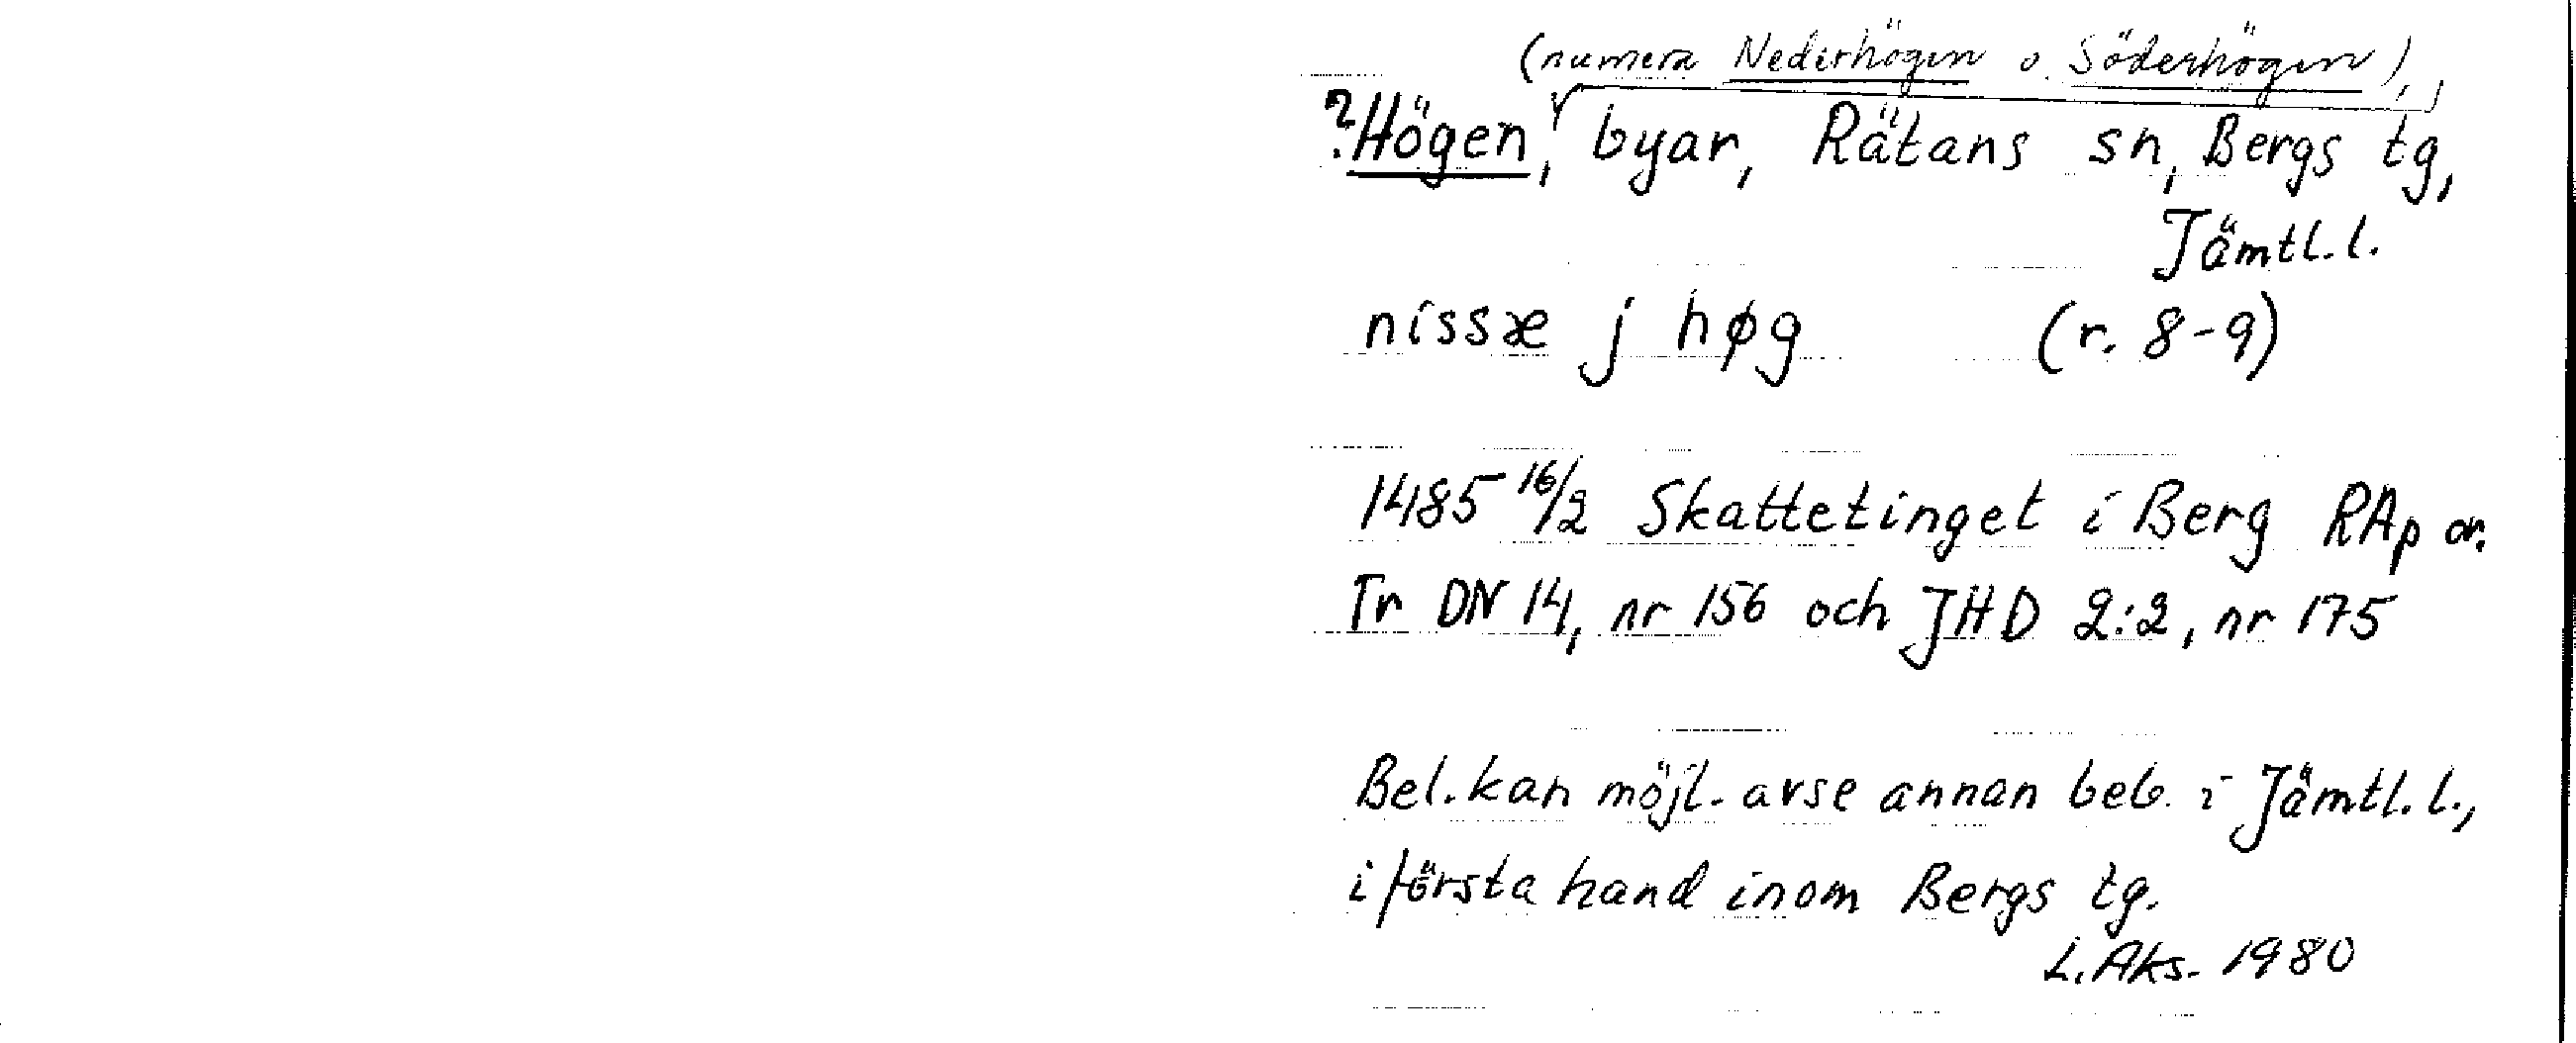 (numera Nederhögen o. Söderhögen),
?Högen, byar, Rätans sn, Bergs tg,
Jämtl. l.
nissæ j høg (r. 8-9)
1485 16/2 Skattetinget i Berg RAp or.
Tr DN 14, nr 156 och JHD 2:2, nr 175
Bel. kan möjl. avse annan beb. i Jämtl. l.,
i första hand inom Bergs tg.
L. Aks. 1980